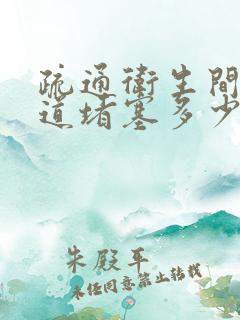 疏通卫生间
道堵塞多少
朱殿平
未经同意禁止转载